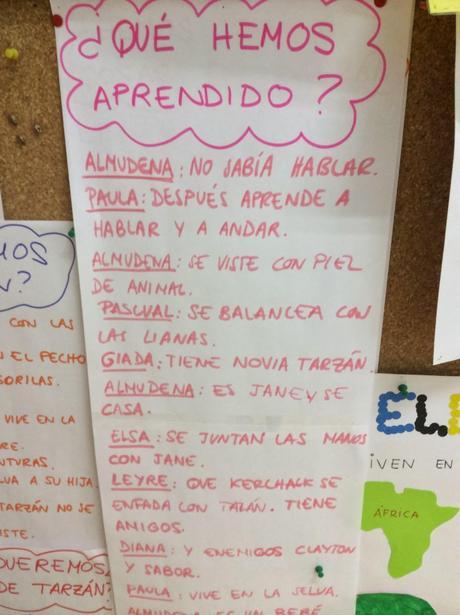 ¿QUÉ HEMOS
APRENDIDO?
ALMUDENA: NO SABÍA HABLAR.
PAULA: DESPUÉS APRENDE A
HABLAR Y A ANDAR.
ALMUDENA: SE VISTE CON PIEL
DE ANINAL.
PASCUAL: SE BALANCEA CON
LAS LIANAS.
GIADA: TIENE NOVIA TARZÁN.
ALMUDENA: ES JANE Y SE
CASA.
ELSA: SE JUNTAN LAS MANOS
CON JANE.
LEYRE: QUE KERCHACK SE
ENFADA CON TALÁN. TIENE
AMIGOS.
DIANA: Y ENEMIGOS CLAYTON
Y SABOR.
PAULA: VIVE EN LA SELVA.
ALMUDENA: ES UN BEBÉ
MOS
?
CON LAS
EL PECHO
GORILAS.
VIVE EN LA
A SU HIJA
TARZÁN NO SE
QUEREMOS
DE TARZÁN?
ELE
VIVEN EN
ÁFRICA